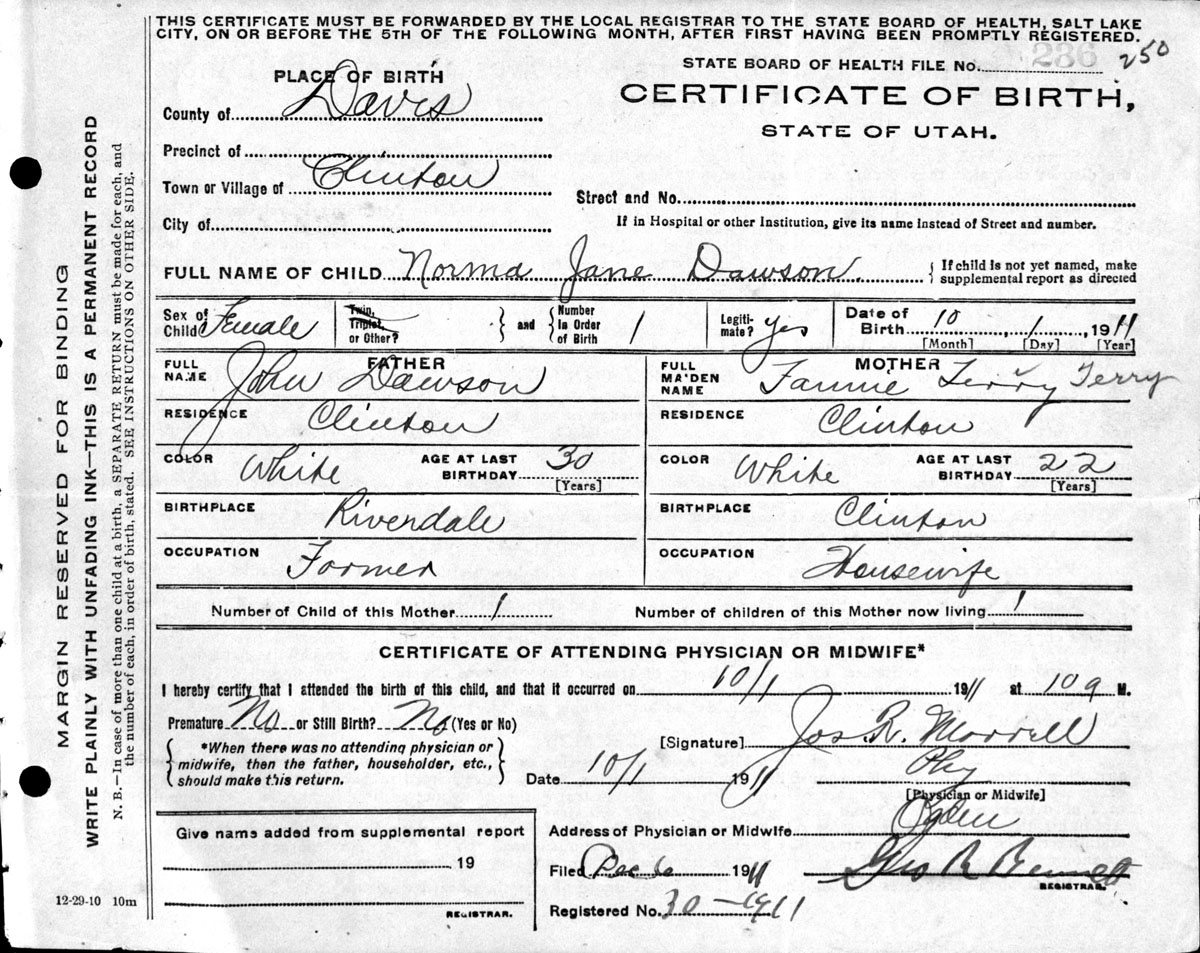 THIS CERTIFICATE MUST BE FORWARDED BY THE LOCAL REGISTRAR TO THE STATE BOARD OF HEALTH, SALT LAKE
CITY, ON OR BEFORE THE 5TH OF THE FOLLOWING MONTH, AFTER FIRST HAVING BEEN PROMPTLY REGISTERED.
STATE BOARD OF HEALTH FILE No. 236 250
PLACE OF BIRTH
CERTIFICATE OF BIRTH,
STATE OF UTAH.
County of Davis
Precinct of
Town or Village of Clinton
Street and No.
City of
If in Hospital or other Institution, give its name instead of Street and number.
FULL NAME OF CHILD Norma Jane Dawson { If child is not yet named, make
supplemental report as directed
Sex of Child Female
Twin, Triplet, or Other? } and { Number in Order of Birth 1
Legitimate? yes
Date of Birth 10, 1, 1911
[Month] [Day] [Year]
FATHER
FULL NAME John Dawson
RESIDENCE Clinton
COLOR White AGE AT LAST BIRTHDAY 30
[Years]
BIRTHPLACE Riverdale
OCCUPATION Farmer
MOTHER
FULL MAIDEN NAME Fannie Terry Terry
RESIDENCE Clinton
COLOR White AGE AT LAST BIRTHDAY 22
[Years]
BIRTHPLACE Clinton
OCCUPATION Housewife
Number of Child of this Mother 1 Number of children of this Mother now living 1
CERTIFICATE OF ATTENDING PHYSICIAN OR MIDWIFE*
I hereby certify that I attended the birth of this child, and that it occurred on 10/1 1911 at 10 a M.
Premature No or Still Birth? No (Yes or No)
{ *When there was no attending physician or
midwife, then the father, householder, etc.,
should make this return. }
[Signature] Jos. R. Morrell
Date 10/1 1911 Phy
[Physician or Midwife]
Give name added from supplemental report
19
REGISTRAR.
Address of Physician or Midwife Ogden
Filed Dec 6 1911 Geo R Bennett
REGISTRAR.
Registered No. 30-1911
12-29-10 10m
MARGIN RESERVED FOR BINDING
WRITE PLAINLY WITH UNFADING INK—THIS IS A PERMANENT RECORD
N. B.—In case of more than one child at a birth, a SEPARATE RETURN must be made for each, and
the number of each, in order of birth, stated. SEE INSTRUCTIONS ON OTHER SIDE.